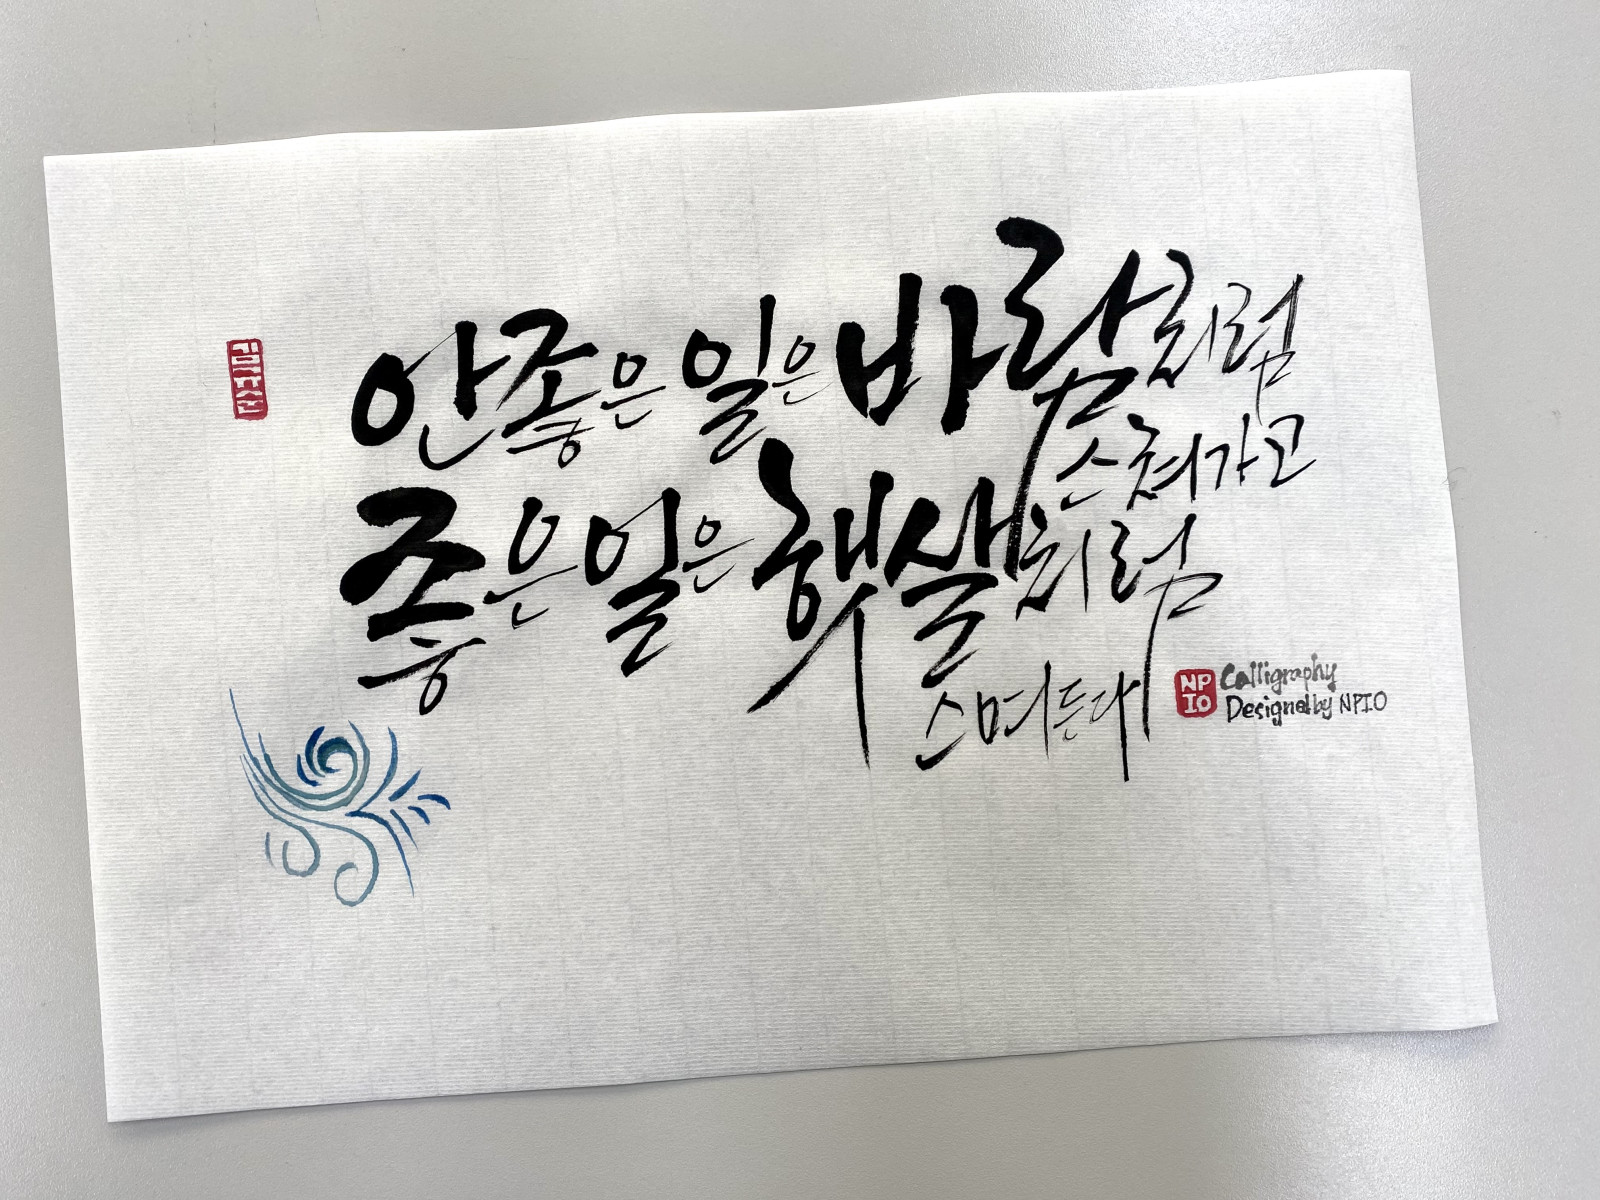 안좋은 일은 바람처럼
스쳐가고
좋은 일은 햇살처럼
스며든다
NP
IO
Calligraphy
Designed by NPIO